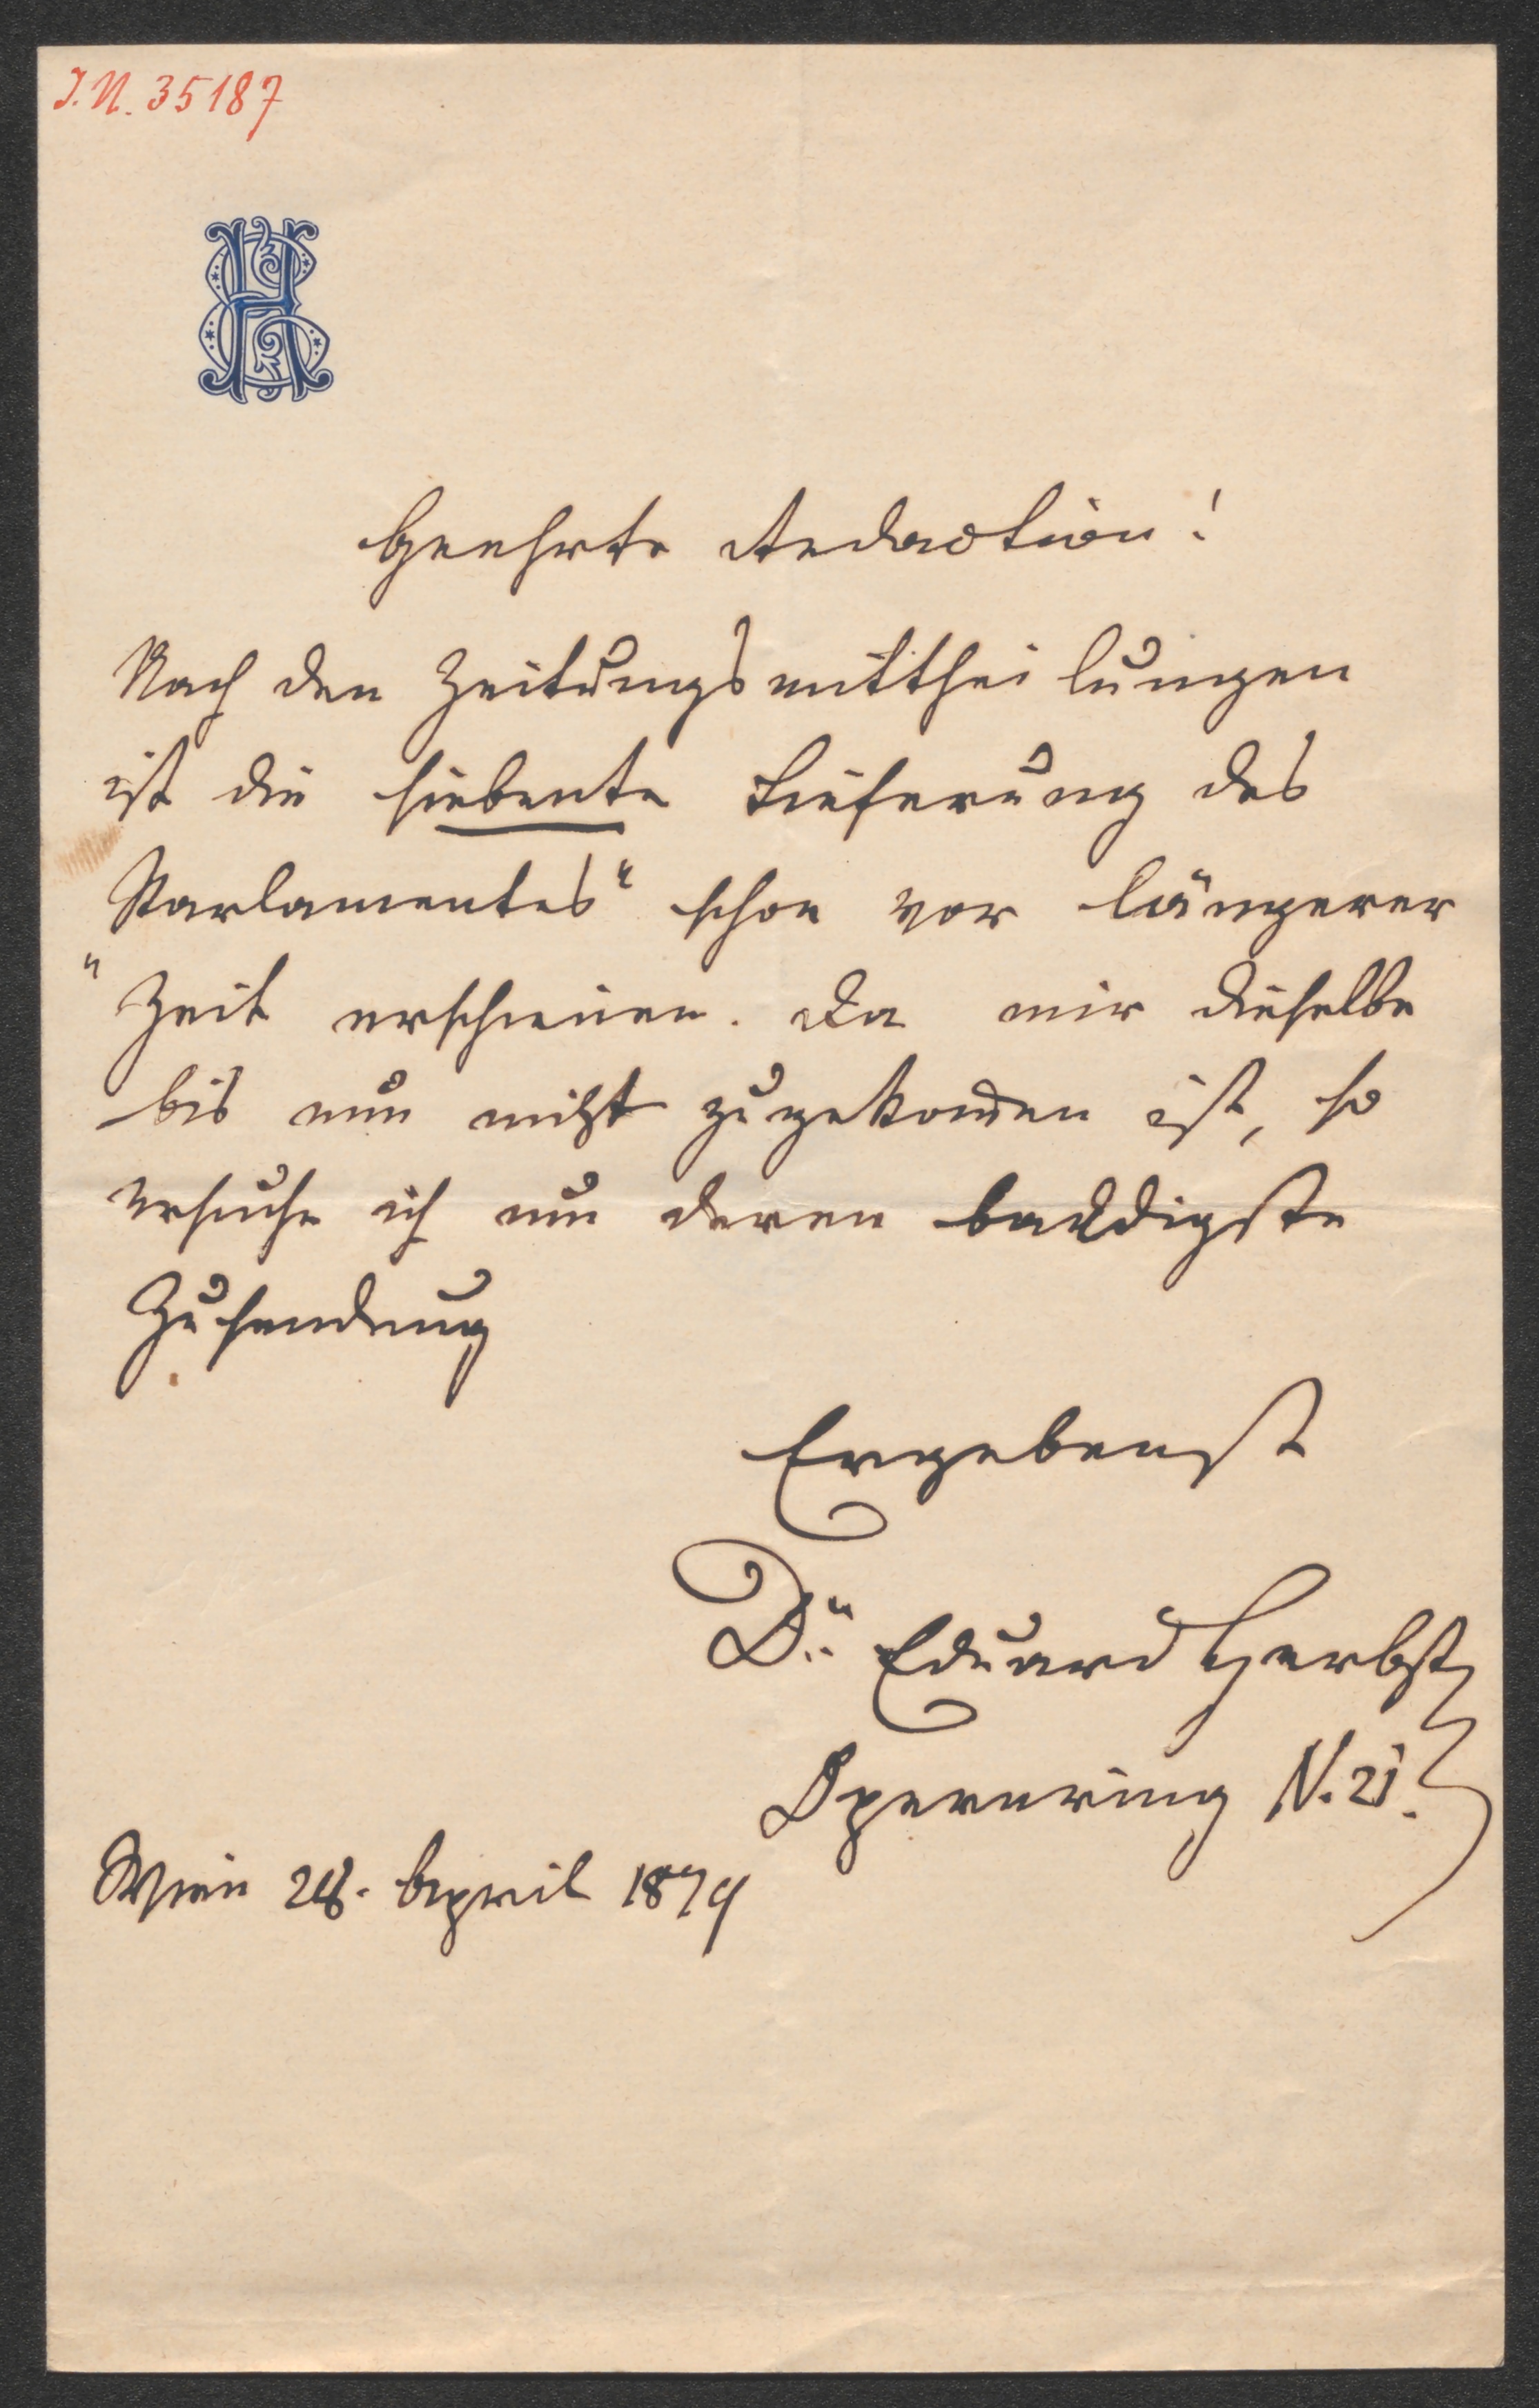 I.N. 35187
EH
Geehrte Redaction!
Nach den Zeitungsmittheilungen
ist die siebente Lieferung des
Parlamentes“ schon vor längerer
„Zeit erschienen. Da mir dieselbe
bis nun nicht zugekommen ist, so
ersuche ich um deren baldigste
Zusendung
Ergebenst
Dr. Eduard Herbst
Opernring N. 21.
Wien 28. April 1879